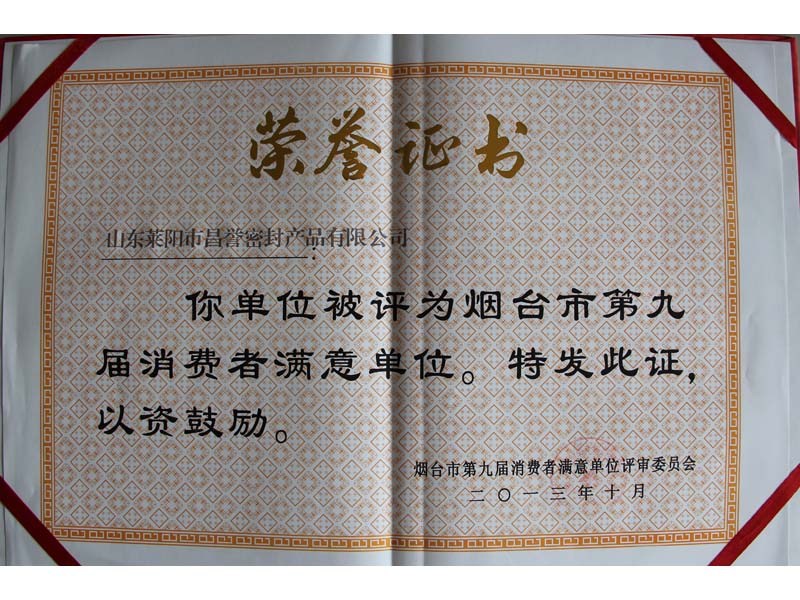 荣誉证书
山东莱阳市昌誉密封产品有限公司
:
你单位被评为烟台市第九
届消费者满意单位。特发此证，
以资鼓励。
烟台市第九届消费者满意单位评审委员会
二〇一三年十月